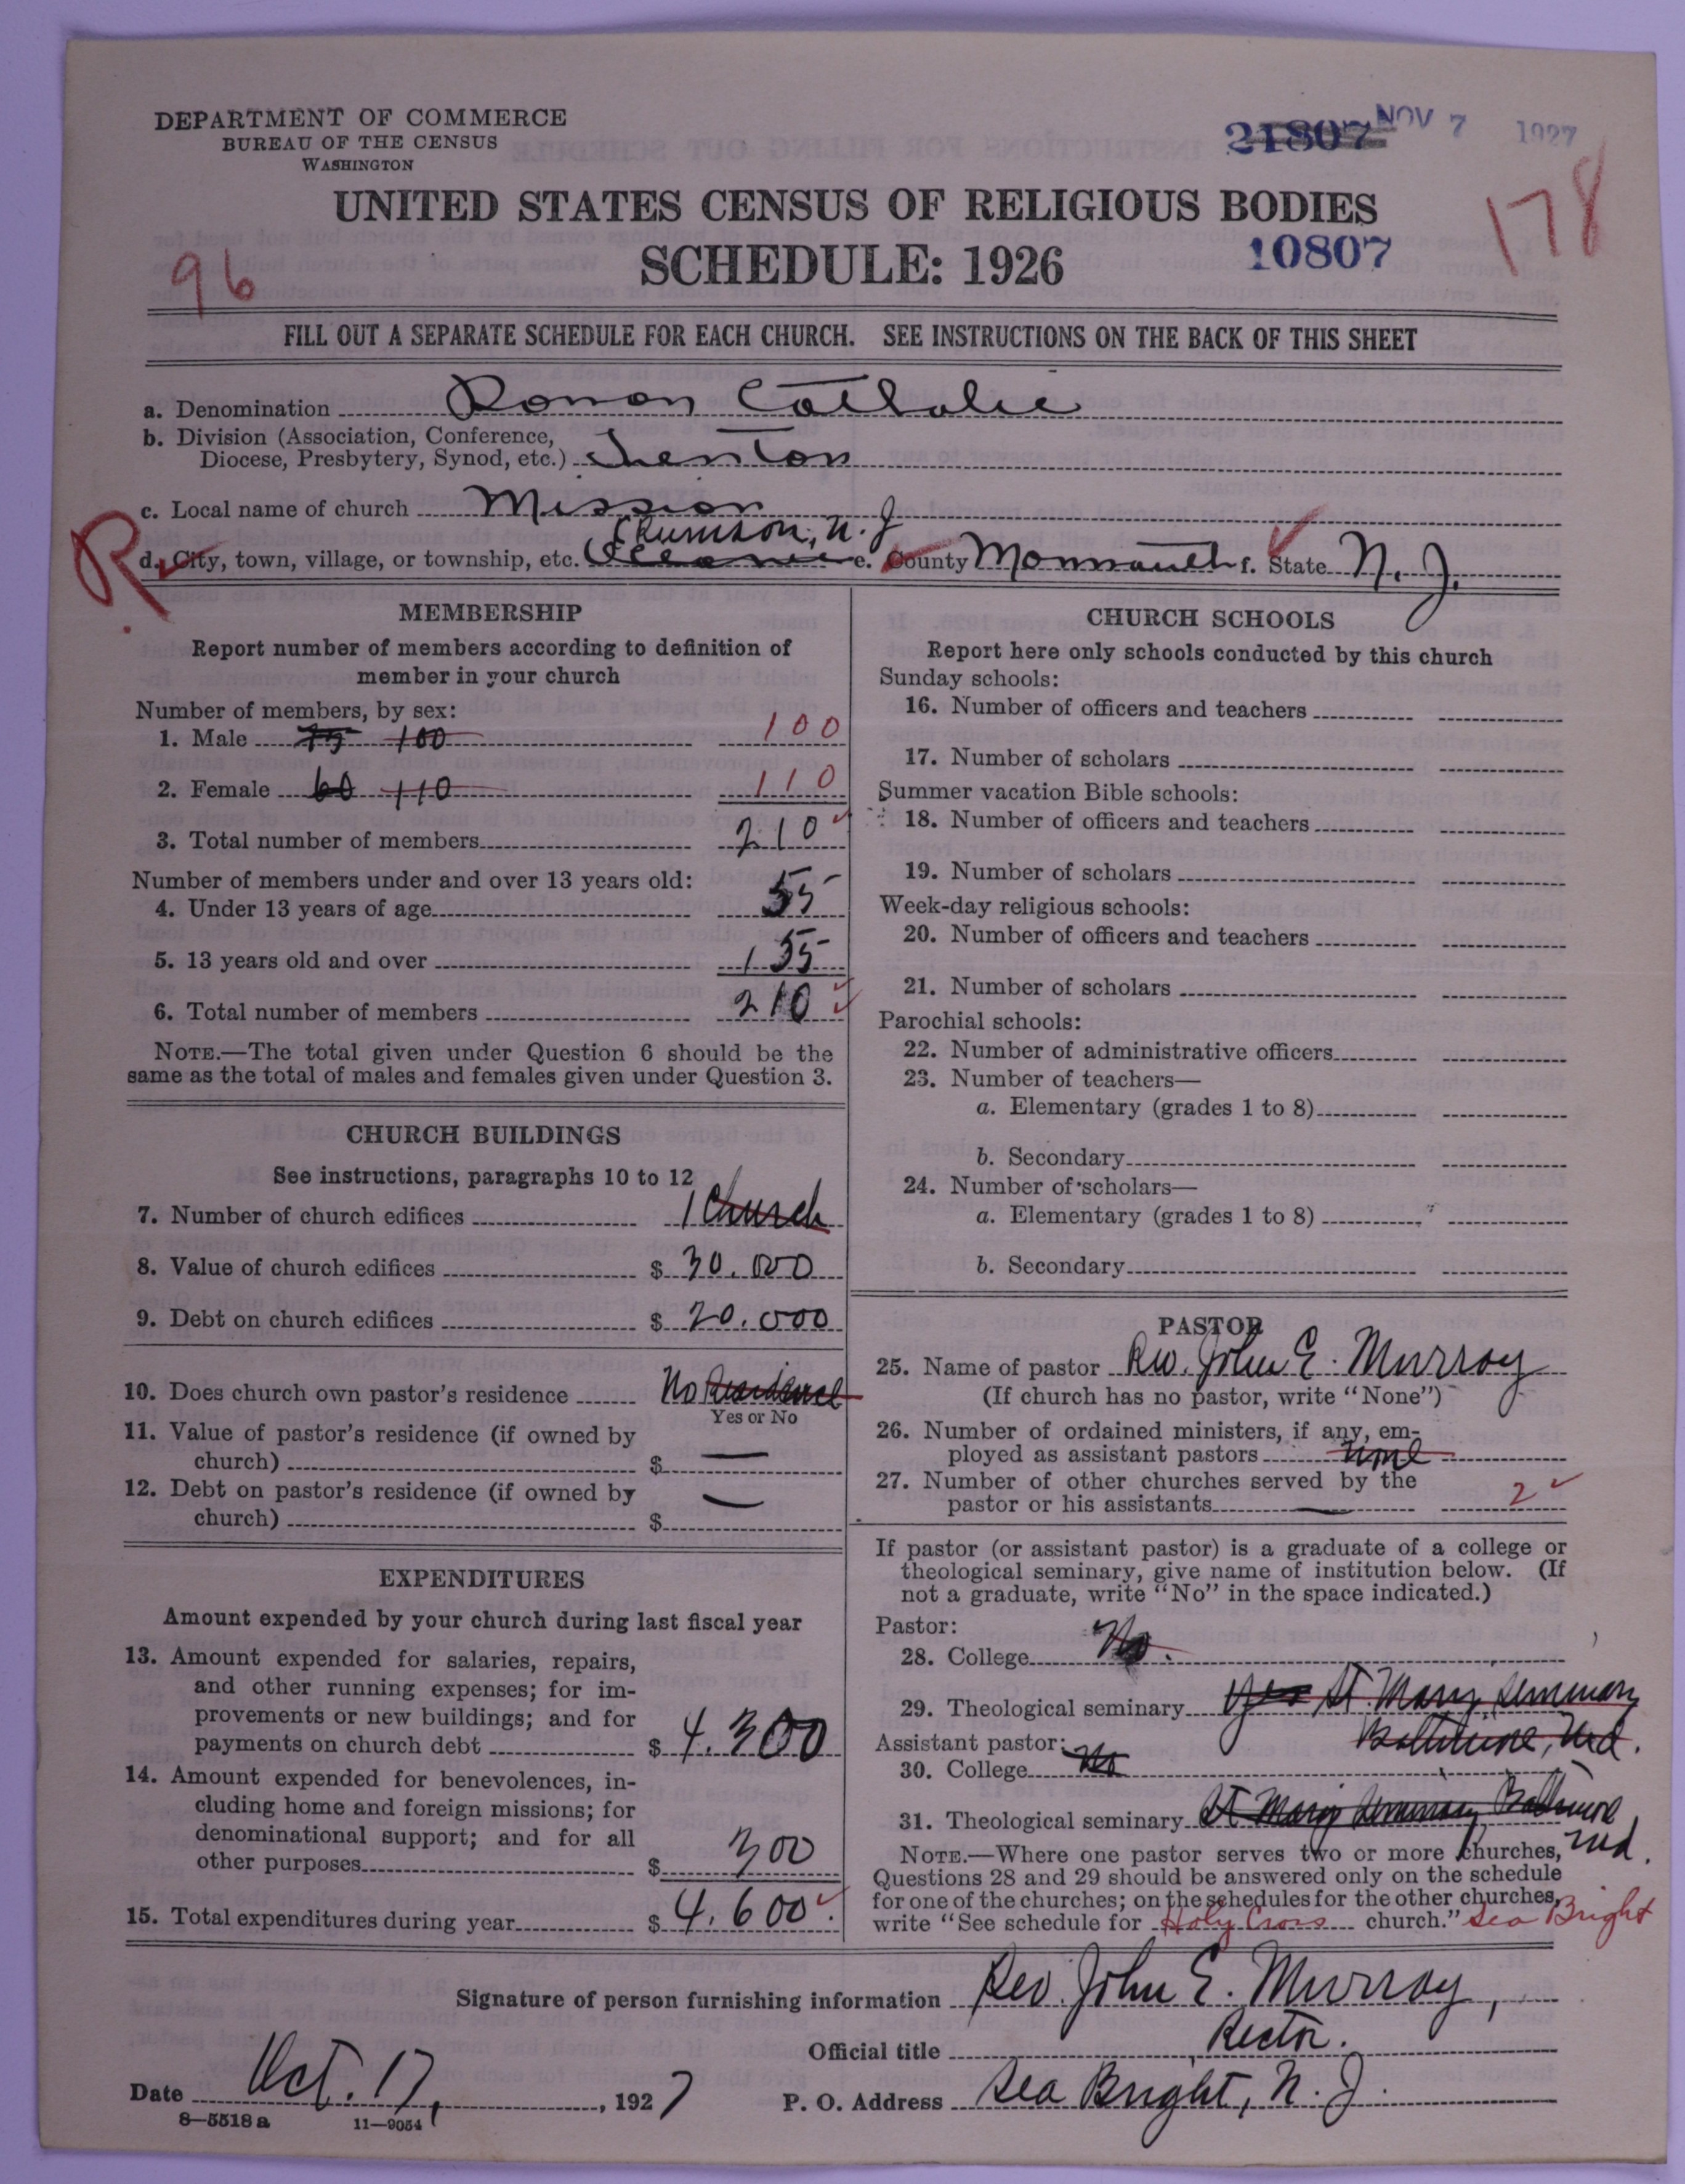 DEPARTMENT OF COMMERCE
BUREAU OF THE CENSUS
WASHINGTON
21807 NOV 7 1927
UNITED STATES CENSUS OF RELIGIOUS BODIES
178
96 SCHEDULE: 1926 10807
FILL OUT A SEPARATE SCHEDULE FOR EACH CHURCH. SEE INSTRUCTIONS ON THE BACK OF THIS SHEET
a. Denomination Roman Catholic
b. Division (Association, Conference,
Diocese, Presbytery, Synod, etc.) Trenton
c. Local name of church Mission
Rumson, N. J
R d. City, town, village, or township, etc. e. County Monmouth f. State N. J.
MEMBERSHIP
Report number of members according to definition of
member in your church
Number of members, by sex:
1. Male 75 100 100
2. Female 60 110 110
3. Total number of members 210
Number of members under and over 13 years old:
4. Under 13 years of age 55
5. 13 years old and over 155
6. Total number of members 210
NOTE.—The total given under Question 6 should be the
same as the total of males and females given under Question 3.
CHURCH BUILDINGS
See instructions, paragraphs 10 to 12
7. Number of church edifices 1 Church
8. Value of church edifices $ 30.000
9. Debt on church edifices $ 20.000
10. Does church own pastor's residence No Residence
Yes or No
11. Value of pastor's residence (if owned by
church) $ —
12. Debt on pastor's residence (if owned by
church) $ —
EXPENDITURES
Amount expended by your church during last fiscal year
13. Amount expended for salaries, repairs,
and other running expenses; for im-
provements or new buildings; and for
payments on church debt $ 4.300
14. Amount expended for benevolences, in-
cluding home and foreign missions; for
denominational support; and for all
other purposes $ 300
15. Total expenditures during year $ 4.600.
CHURCH SCHOOLS
Report here only schools conducted by this church
Sunday schools:
16. Number of officers and teachers
17. Number of scholars
Summer vacation Bible schools:
18. Number of officers and teachers
19. Number of scholars
Week-day religious schools:
20. Number of officers and teachers
21. Number of scholars
Parochial schools:
22. Number of administrative officers
23. Number of teachers—
a. Elementary (grades 1 to 8)
b. Secondary
24. Number of scholars—
a. Elementary (grades 1 to 8)
b. Secondary
PASTOR
25. Name of pastor Rev. John E. Murray
(If church has no pastor, write "None")
26. Number of ordained ministers, if any, em-
ployed as assistant pastors none
27. Number of other churches served by the
pastor or his assistants — 2
If pastor (or assistant pastor) is a graduate of a college or
theological seminary, give name of institution below. (If
not a graduate, write "No" in the space indicated.)
Pastor:
28. College No.
29. Theological seminary yes St. Mary Seminary
Baltimore, Md.
Assistant pastor:
30. College No
31. Theological seminary St Marys Seminary Baltimore
Md.
NOTE.—Where one pastor serves two or more churches,
Questions 28 and 29 should be answered only on the schedule
for one of the churches; on the schedules for the other churches,
write "See schedule for Holy Cross church." Sea Bright
Signature of person furnishing information Rev. John E. Murray,
Official title Rector.
Date Oct. 17, 1927 P. O. Address Sea Bright, N. J.
8—5518 a 11—9054